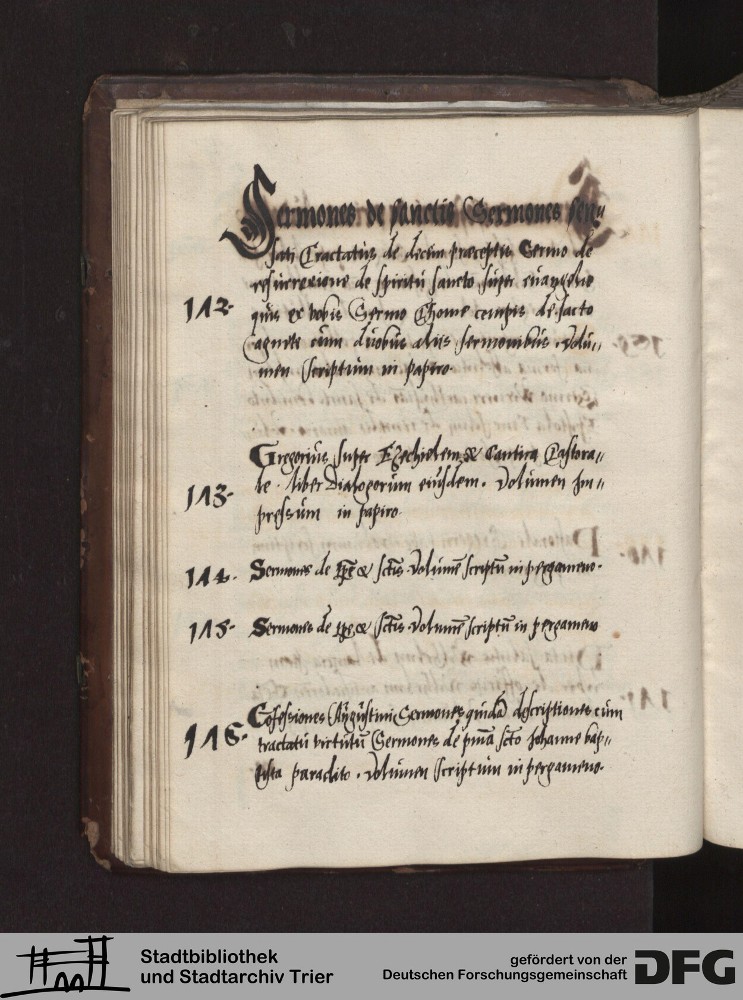 Sermones de sanctis Sermones sen„
sati Tractatus de decem præceptis Sermo de
resurrexione de spiritu sancto super euangelio
112. quis ex vobis Sermo Thome de sacto
agnete cum duobus aliis sermonibus. Volu„
men scriptum in papiro.
Gregorius super Ezechielem & Cantica Pastora„
113. le. liber Dialogorum eiusdem. Volumen im„
pressum in papiro.
114. Sermones de tpe & sctis Volume scriptu in pergameno.
115. Sermones de tpe & sctis Volume scriptu in pergameno
Cofessiones Augustini Sermones quida descriptiones cum
116. tractatu virtutum Sermones de scto Johanne bap„
tista paraclito. Volumen scriptum in pergameno.
Stadtbibliothek
und Stadtarchiv Trier
gefördert von der
Deutschen Forschungsgemeinschaft
DFG